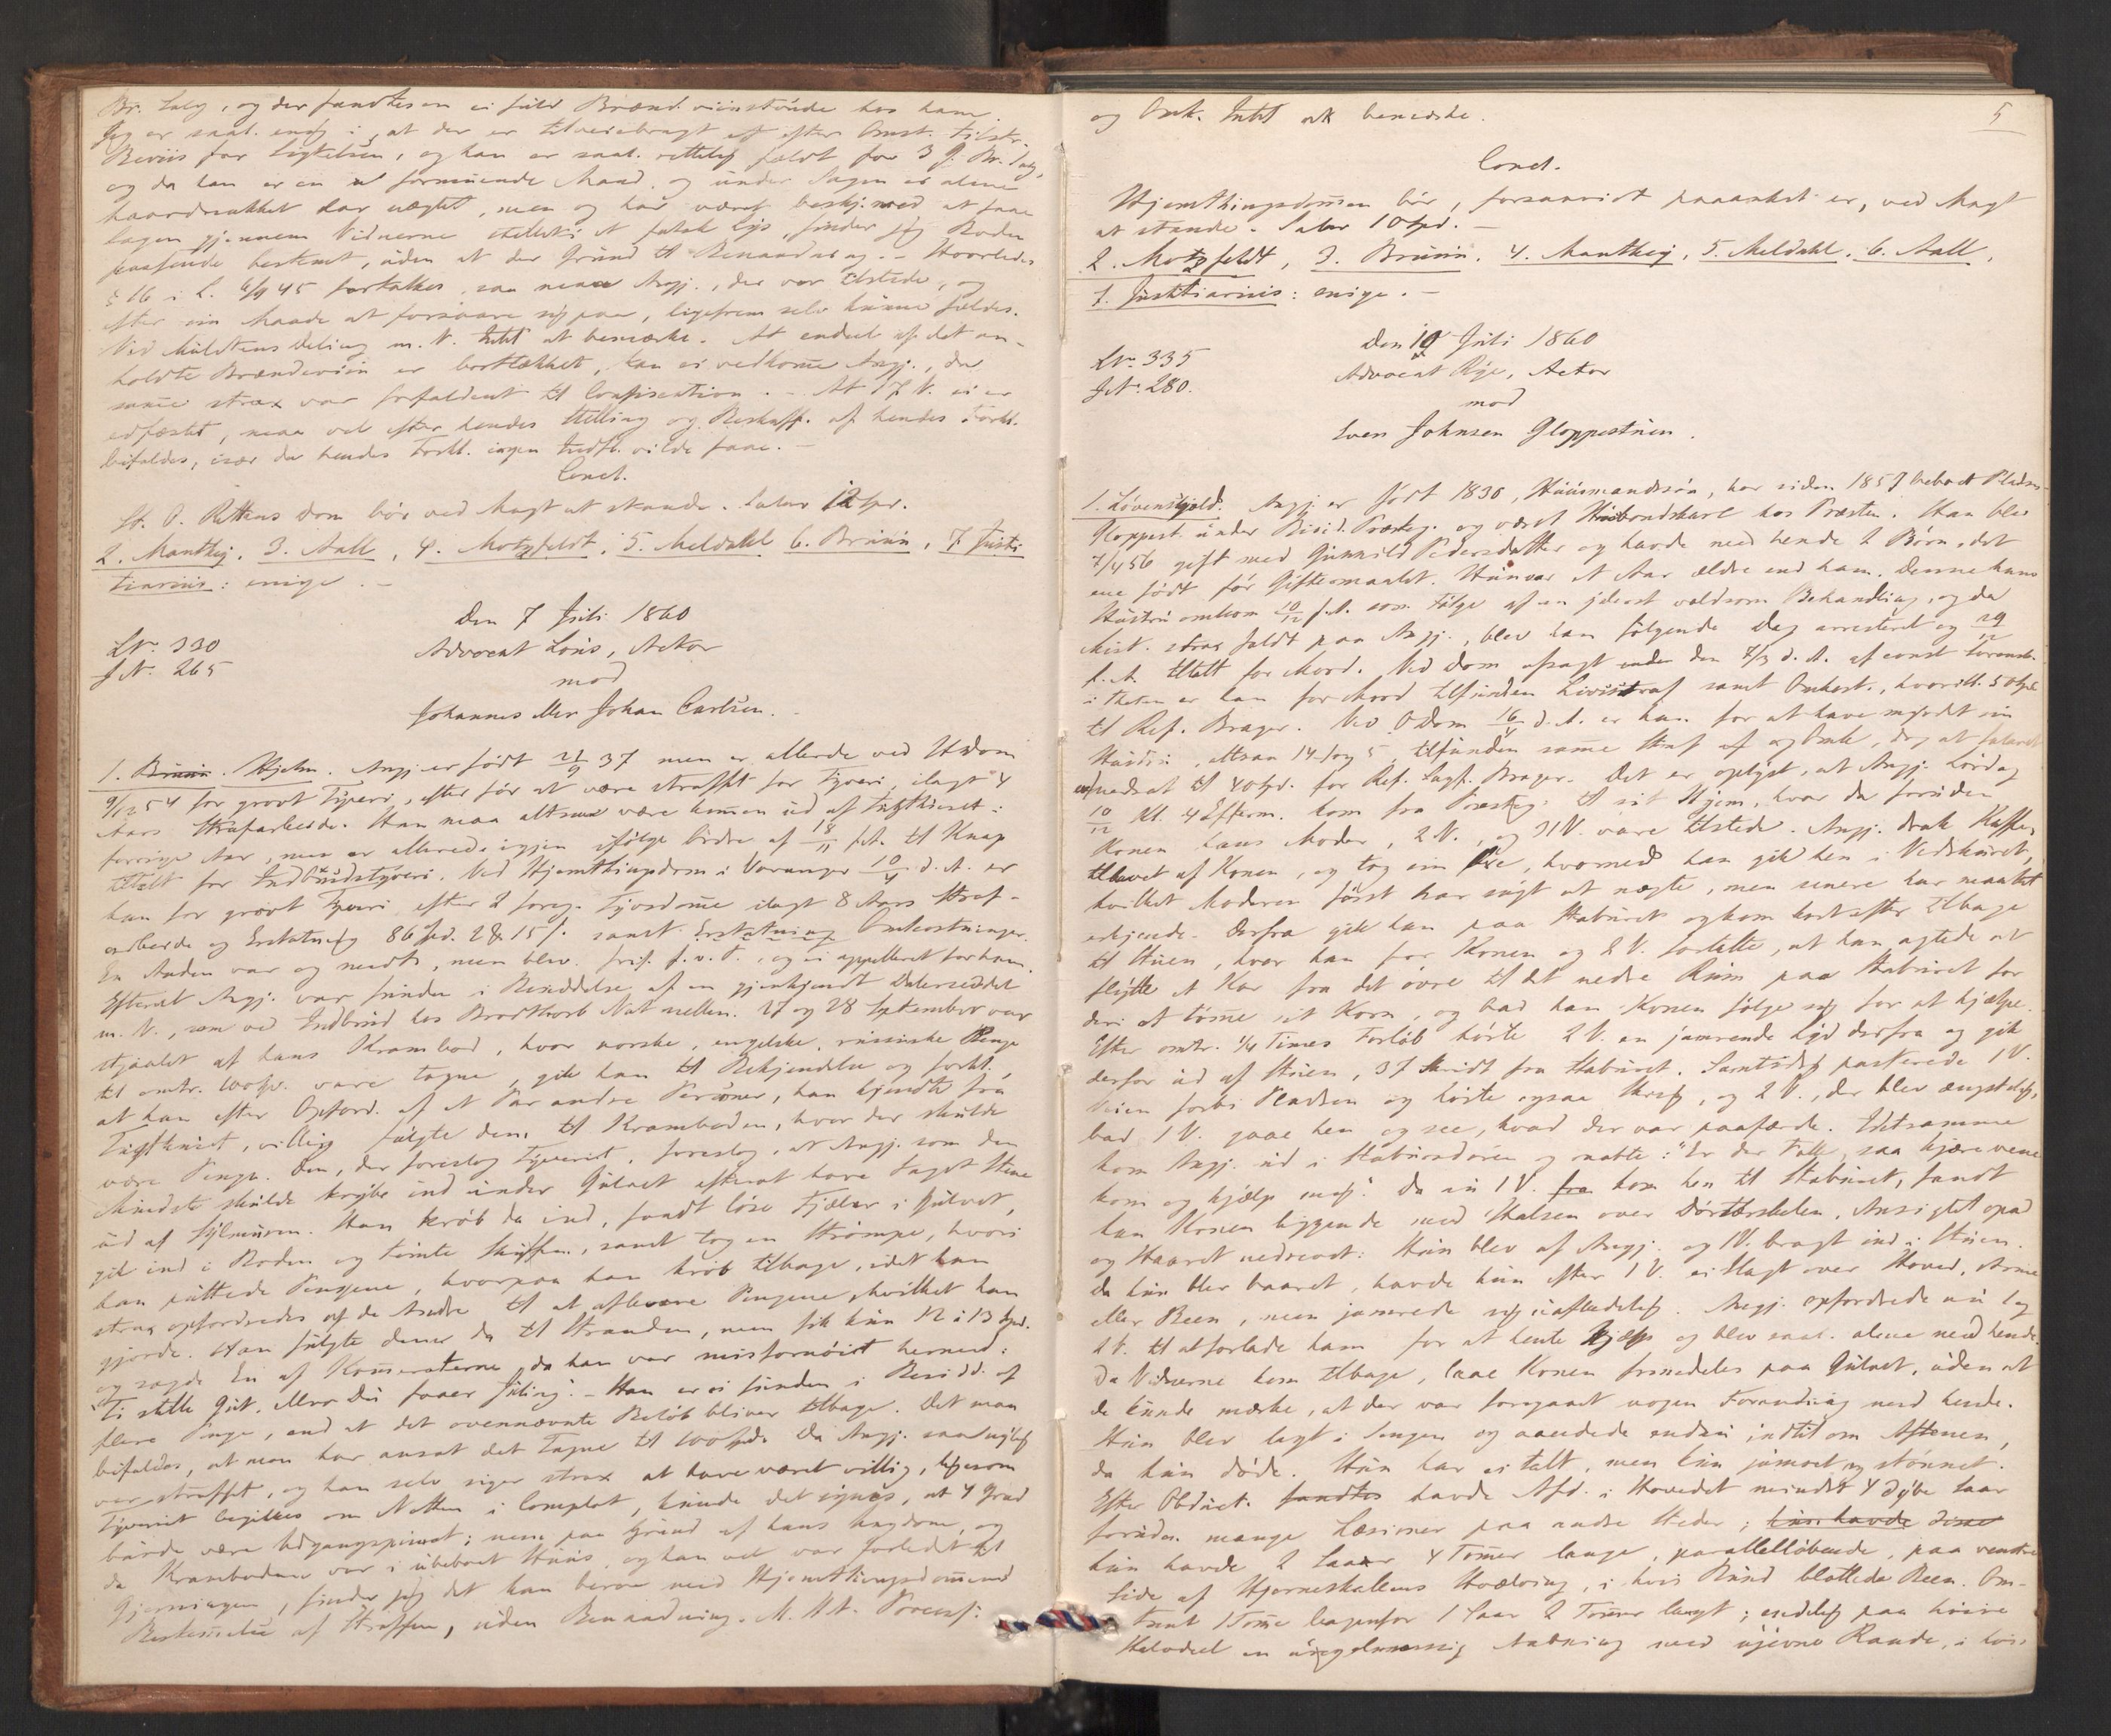 Br. Salg, og der fandtes en ei fuld Brændeviinstønde hos ham.
Jeg er saal. enig i, at der er tilveiebragt et efter Omst. tilstr.
Beviis for Sigtelsen, og han er saal. rettelig fældt for 3 G. Br. Salg,
og da han er en formuende Mand, og under Sagen ei alene
haardnakket har nægtet, men og har været beskj. med at faae
Sagen gjennem Vidnerne stillet i et falsk Lys, finder jeg Boden
passende bestemt, uden at der Grund til Benaadning. - Hvorledes
§ 16 i L. 6/9 45 fortolkes, saa maa Angj., der var tilstede, og
efter sin Maade at forsvare sig paa, ligefrem selv kunne fældes.
Ved Mulctens Deling m. V. Intet at bemærke. At endeel af det an-
holdte Brændeviin er bortlækket, kan ei vedkomme Angj., da
samme strax var forfaldent til Confiscation. - At 7 V. ei er
edfæstet, maa vel efter hendes Stilling og Beskaff. af hendes Forkl.
bifaldes, især da hendes Forkl. ingen Indfl. vilde faae. -
Concl.
St. O. Rettens Dom bør ved Magt at stande. Salar 12 Spd.
2. Manthey, 3. Aall, 4. Motzfeldt, 5. Meldahl 6. Bruun, 7 Justi
tiarius: enige. -
Den 7 Juli 1860
LNo 330
Advocat Lous, Actor
JN. 265
mod
Johannes eller Johan Carlsen. -
1. Bruun. Hjelm. Angj. er født 21/9 37 men er allerede ved Hdom
9/12 54 for grovt Tyveri, efter før at være straffet for Tyveri, ilagt 4
Aars Strafarbeide. Han maa altsaa være kommen ud af Tugthuset
forrige Aar, men er allerede igjen ifølge Ordre af 18/11 f.A. sat til Knap
tiltalt for Indbrudstyveri. Ved Hjemthingsdom i Varanger 10/4 d. A. er
han for grovt Tyveri efter 2 foreg. Tyvsdomme ilagt 8 Aars Straf-
arbeide og Erstatning 86 Spd. 2 & 15 s. samt Erstatning Omkostninger.
En Anden var og med, men blev frif. f. v. T., og ei appelleret for ham.
Efterat Angj. var funden i Besiddelse af en gjenkjendt Dalerseddel
m. V., som ved Indbrud hos Brodtkorb Nat mellem 27 og 28 September var
stjaalet af hans Krambod, hvor norske, engelske, russiske Penge
til omtr. 100 Spd. vare tagne, gik han til Bekjendelse og forkl.,
at han efter Opford. af et Par andre Personer, han kjendte fra
Tugthuset, villig fulgte dem til Kramboden, hvor der skulde
være Penge. Den, der foreslog Tyveriet, foreslog, at Angj. som den
Mindste skulde krybe ind under Gulvet efterat have taget Stene
ud af Sylmuren. Han krøb da ind, fandt løse Fjæler i Gulvet,
gik ind i Boden og tømte Skuffen, samt tog en Strømpe, hvori
han puttede Pengene, hvorpaa han krøb tilbage, idet han
strax opfordredes af de Andre til at aflevere Pengene, hvilket han
gjorde. Han fulgte dem da til Stranden, men fik kun 12 á 13 Spd.
og sagde En af Kammeraterne, da han var misfornøiet hermed:
"Ti stille Gut, ellers Du faaer Juling". - Han er ei funden i Besidd. af
flere Penge, end at det ovennævnte Beløb bliver tilbage. Det maa
bifaldes, at man har ansat det Tagne til 100 Spd. Da Angj. saa nylig
var straffet, og han selv siger strax at have været villig, ligesom
Tyveriet begikkes om Natten i Complot, kunde det synes, at 4 Grad
burde være Udgangspunct; men paa Grund af hans Ungdom, og
da Kramboden var i ubeboet Huus, og han vel var forledet til
Gjerningen, finder jeg det kan beroe med Hjemthingsdommens
Bestemmelse af Straffen, uden Benaadning. M. H. t. Process:
5
og Omk. Intet at bemærke.
Concl.
Hjemthingsdommen bør, forsaavidt paaanket er, ved Magt
at stande. Salar 10 Spd. -
2. Motzfeldt, 3. Bruun. 4. Manthey, 5. Meldahl. 6. Aall,
7. Justitiarius: enige. -
Den 10 Juli 1860
LNo 335
Advocat Rye, Actor
JN. 280.
mod
Sven Johnsen Gloppestuen.
1. Løvenskjold. Angj. er født 1830, Huusmandssøn, har siden 1857 beboet Pladsen
Gloppest. under Præsteg. og været Husbondskarl hos Præsten. Han blev
7/4 56 gift med Gunnild Pedersdatter og havde med hende 2 Børn, det
ene født før Giftermaalet. Hun var et Aar ældre end ham. Denne hans
Hustru omkom 10/12 f.A. som Følge af en yderst voldsom Behandling, og da
Mist. strax faldt paa Angj., blev han følgende Dag arresteret og 29/12
f. A. tiltalt for Mord. Ved Dom afsagt den 7/3 d. A. af const. Sorensk.
i er han for Mord tilfunden Livsstraf samt Omkost., hvori ill. 50 Spd.
til Ref. Brager. Ved O Dom 16/4 d. A. er han for at have myrdet sin
Hustru, altsaa 14-1 og 5, tilfunden samme Straf og Omk., dog at Salaret
nedsat til 40 Spd. for Ref. Sagf. Brager. Det er oplyst, at Angj. Lørdag
10/12 Kl. 4 Efterm. kom fra Præsteg. til sit Hjem, hvor da foruden
Konen hans Moder, 2 V., og 31 V. vare tilstede. Angj. drak Kaffe,
tillavet af Konen, og tog sin Øxe, hvormed han gik hen i Vedskuret,
hvilket Moderen først har søgt at nægte, men senere har maattet
erkjende. Derfra gik han paa Stabburet og kom kort efter tilbage
til Stuen, hvor han for Konen og 2 V. fortalte, at han agtede at
flytte et Kar fra det øvre til det nedre Rum paa Stabburet for
deri at tømme sit Korn, og bad han Konen følge sig for at hjælpe.
Efter omtr. 1/4 Times Forløb hørte 2 V. en jamrende Lyd derfra og gik
derfor ud af Stuen, 37 Skridt fra Stabburet. Samtidig passerede 1 V.
Veien forbi Pladsen og hørte ogsaa Skrig, og 2 V., der blev ængstelig,
bad 1 V. gaae hen og see, hvad der var paafærde. I detsamme
kom Angj. ud i Stabbursdøren og raabte: "Er der Folk, saa kjære vene
kom og hjælp mig". Da nu 1 V. kom hen til Stabburet, fandt
han Konen liggende med Halsen over Dørtærskelen, Ansigtet opad
og Haaret nedrevet. Hun blev af Angj. og 1 V. bragt ind i Stuen.
Da hun blev baaret, havde hun efter 1 V. ei Magt over Hoved, Arme
eller Been, men jamrede sig uafladelig. Angj. opfordrede nu 1 og
2 V. til at forlade ham for at hente Hjælp og blev saal. alene med hende.
Da Vidnerne kom tilbage, laae Konen fremdeles paa Gulvet, uden at
de kunde mærke, at der var foregaaet nogen Forandring med hende.
Hun blev lagt i Sengen og aandede endnu indtil om Aftenen,
da hun døde. Hun har ei talt, men kun jamret og stønnet.
Efter Obduct. fandtes havde Afd. i Hovedet mindst 4 dybe Saar
foruden mange Læsioner paa andre Steder; hun havde disse
hun havde 2 Saar 4 Tommer lange, parallelløbende, paa venstre
Side af Hjerneskallens Hvælving, i hvis Bund blottede Been. Om-
trent 1 Tomme bagenfor 1 Saar 2 Tommer langt; endelig paa høire
en uregelmæssig Aabning med ujevne Rande, i hvis